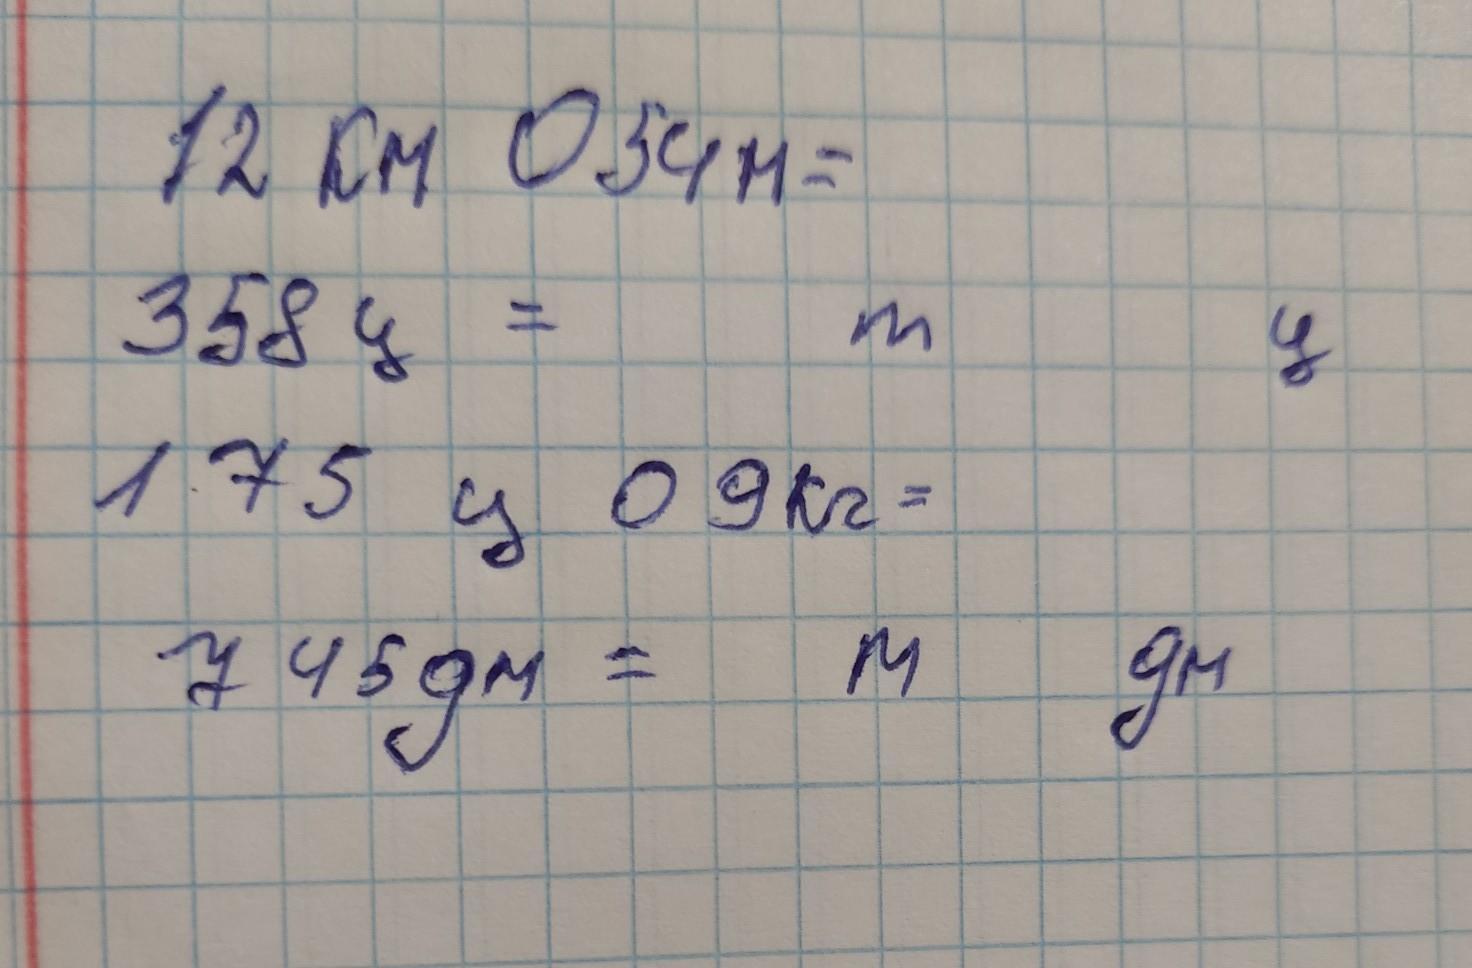 12 км 054м=
358 ц = т ц
175 ц 09кг=
745дм = м дм